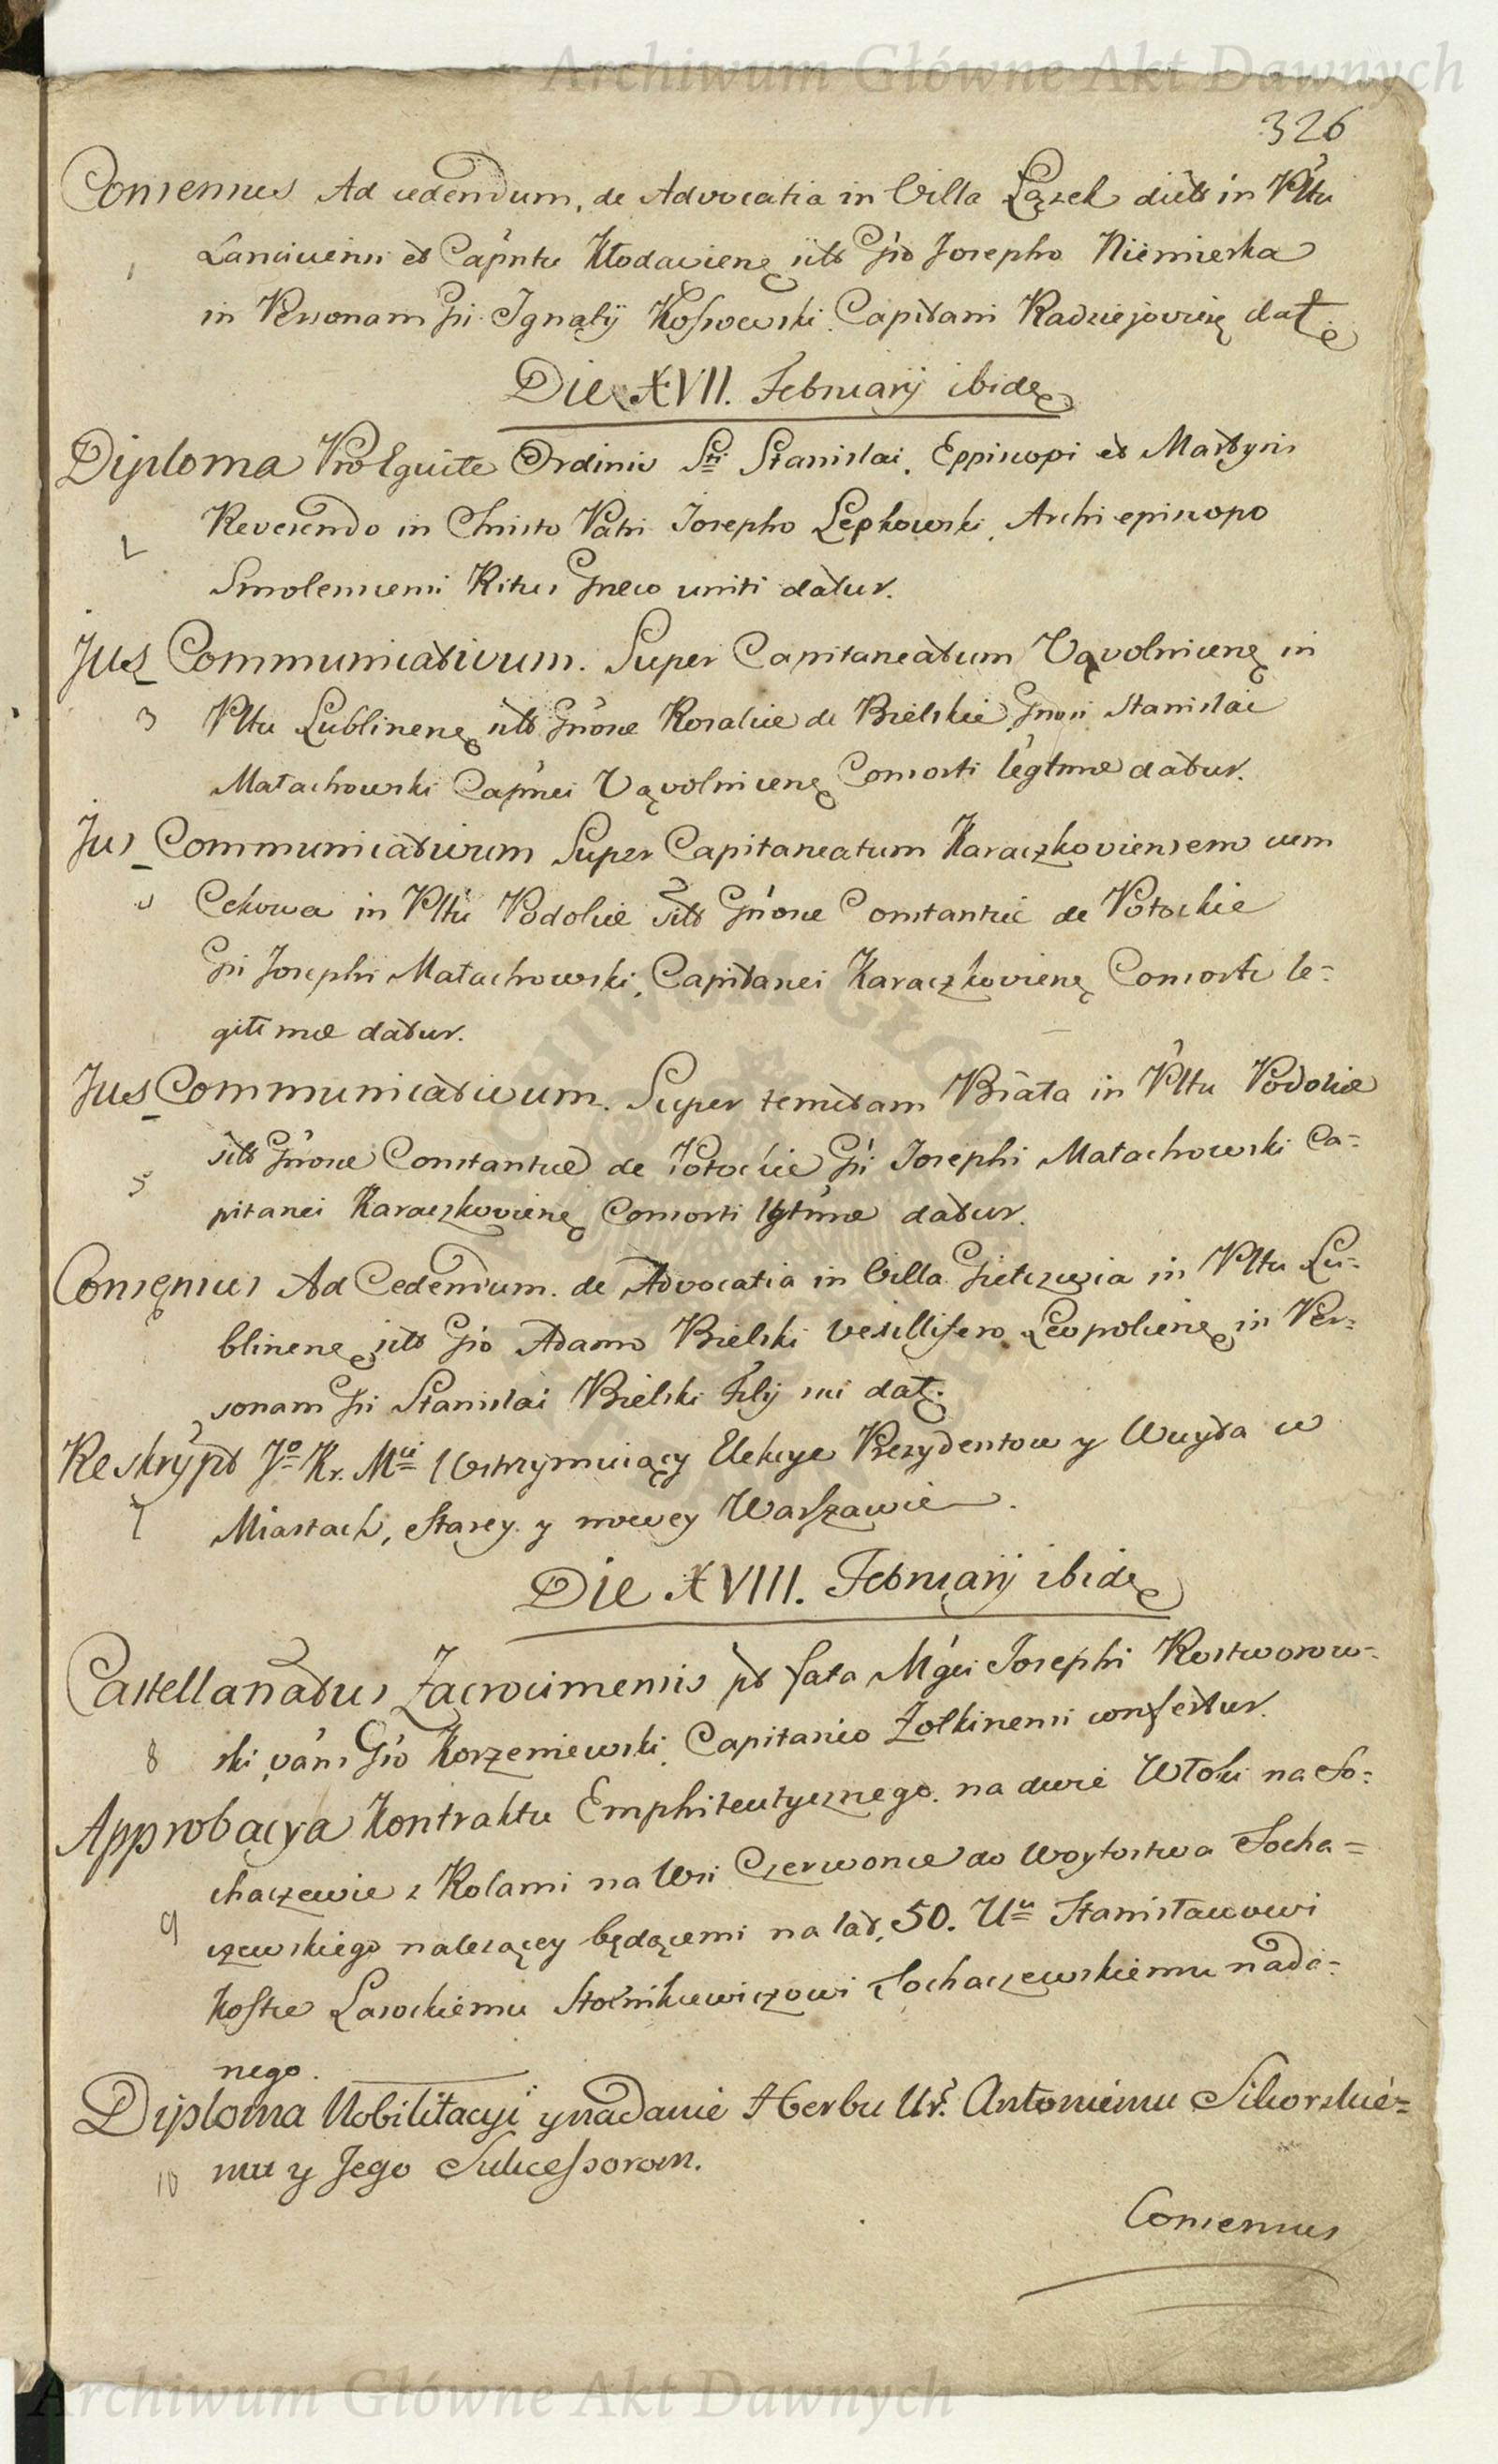 Archiwum Główne Akt Dawnych
326
Consensus Ad cedendum, de Advocatia in Villa Łązek dicta in Pltu
1 Lanciciensi et Capntu Kłodaviens sito Gso Josepho Niemierka
in Personam Gsi Ignatij Kossowski Capitani Radziejoviens datę
Die XVII. Februarij ibidę
Diploma Pro Equite Ordinis Sti Stanislai, Eppiscopi et Martyris
2 Reverendo in Christo Patri Josepho Lepkowski, Archi episcopo
Smolenscensi Ritus Græco uniti datur.
Jus Communicativum. Super Capitaneatum Vąvolnicenę in
3 Pltu Lublinenę Gnosæ Rosaliæ de Bielskie Gnosi Stanislai
Małachowski Capnei Vąvolnicenę Consorti legtimæ datur.
Jus Communicativum Super Capitaneatum Karaczkoviensem cum
4 Cekowa in Pltu Podoliæ Gnosæ Constantiæ de Potockie
Gsi Josephi Małachowski, Capitanei Karaczkovienę Consorti le=
gitimæ datur.
Jus Communicativum. Super tenutam Biała in Pltu Podoliæ
5 Gnosæ Constantiæ de Potockie Gsi Josephi Małachowski Ca=
pitanei Karaczkovienę Consorti lgtimæ datur.
Consęnsus Ad Cedendum. de Advocatia in Villa Giełczwia in Pltu Lu=
blinenę Gso Adamo Bielski Vexillifero Leopolienę in Per=
sonam Gsi Stanislai Bielski Filij sui datę.
Reskrypt Jo Kr. Mci Wstrzymuiący Elekcye Prezydentow y Woyta w
7 Miastach, Starey y nowey Warszawie.
Die XVIII. Februarij ibidę
Castellanatus Zacrocimensis pt fata Mgci Josephi Rostworow=
8 ski, Gso Korzeniewski Capitaneo Zołkinensi confertur.
Approbacya Kontraktu Emphiteutycznego. na dwie Włoki na So=
chaczewie z Rolami na Wsi Czerwonce do Woytostwa Socha=
9 czewskiego należącey będącemi na lat, 50. Uu Stanisławowi
Kostce Lasockiemu Stolnikiewiczowi Sochaczewskiemu nada=
nego.
Diploma Nobilitacyi y nadanie Herbu Ur. Antoniemu Sikorskie=
10 mu y Jego Sukcessorom.
Consensus
Archiwum Główne Akt Dawnych